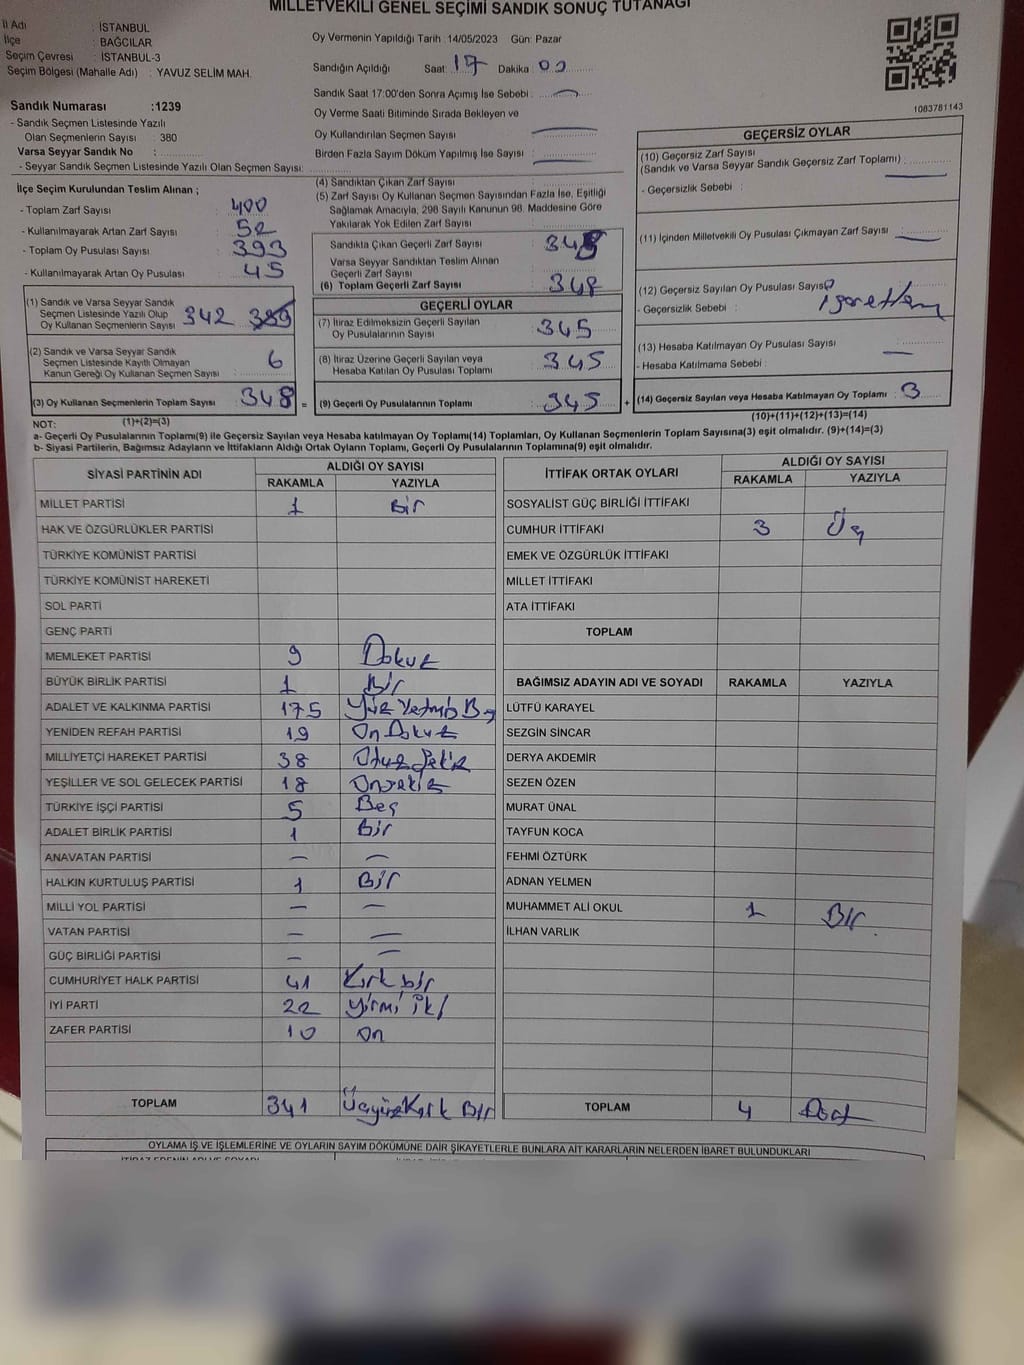 MİLLETVEKİLİ GENEL SEÇİMİ SANDIK SONUÇ TUTANAĞI
İl Adı : İSTANBUL
İlçe : BAĞCILAR
Seçim Çevresi : İSTANBUL-3
Seçim Bölgesi (Mahalle Adı) : YAVUZ SELİM MAH.
Sandık Numarası :1239
- Sandık Seçmen Listesinde Yazılı
Olan Seçmenlerin Sayısı : 380
Varsa Seyyar Sandık No :
- Seyyar Sandık Seçmen Listesinde Yazılı Olan Seçmen Sayısı:
Oy Vermenin Yapıldığı Tarih :14/05/2023 Gün: Pazar
Sandığın Açıldığı Saat :17 Dakika :00
Sandık Saat 17:00'den Sonra Açımış İse Sebebi : —
Oy Verme Saati Bitiminde Sırada Bekleyen ve
Oy Kullandırılan Seçmen Sayısı : —
Birden Fazla Sayım Döküm Yapılmış İse Sayısı : —
1083781143
İlçe Seçim Kurulundan Teslim Alınan ;
- Toplam Zarf Sayısı : 400
- Kullanılmayarak Artan Zarf Sayısı : 52
- Toplam Oy Pusulası Sayısı : 393
- Kullanılmayarak Artan Oy Pusulası : 45
(1) Sandık ve Varsa Seyyar Sandık
Seçmen Listesinde Yazılı Olup
Oy Kullanan Seçmenlerin Sayısı : 342
(2) Sandık ve Varsa Seyyar Sandık
Seçmen Listesinde Kayıtlı Olmayan
Kanun Gereği Oy Kullanan Seçmen Sayısı : 6
(3) Oy Kullanan Seçmenlerin Toplam Sayısı : 348 =
(4) Sandıktan Çıkan Zarf Sayısı :
(5) Zarf Sayısı Oy Kullanan Seçmen Sayısından Fazla İse, Eşitliği
Sağlamak Amacıyla, 298 Sayılı Kanunun 98. Maddesine Göre
Yakılarak Yok Edilen Zarf Sayısı :
Sandıkta Çıkan Geçerli Zarf Sayısı : 348
Varsa Seyyar Sandıktan Teslim Alınan
Geçerli Zarf Sayısı :
(6) Toplam Geçerli Zarf Sayısı : 348
GEÇERLİ OYLAR
(7) İtiraz Edilmeksizin Geçerli Sayılan
Oy Pusulalarının Sayısı : 345
(8) İtiraz Üzerine Geçerli Sayılan veya
Hesaba Katılan Oy Pusulası Toplamı : 345
(9) Geçerli Oy Pusulalarının Toplamı : 345 +
GEÇERSİZ OYLAR
(10) Geçersiz Zarf Sayısı
(Sandık ve Varsa Seyyar Sandık Geçersiz Zarf Toplamı) : —
- Geçersizlik Sebebi :
(11) İçinden Milletvekili Oy Pusulası Çıkmayan Zarf Sayısı : —
(12) Geçersiz Sayılan Oy Pusulası Sayısı :
- Geçersizlik Sebebi :
(13) Hesaba Katılmayan Oy Pusulası Sayısı : —
- Hesaba Katılmama Sebebi :
(14) Geçersiz Sayılan veya Hesaba Katılmayan Oy Toplamı : 3
NOT: (1)+(2)=(3)
(10)+(11)+(12)+(13)=(14)
a- Geçerli Oy Pusulalarının Toplamı(9) ile Geçersiz Sayılan veya Hesaba katılmayan Oy Toplamı(14) Toplamları, Oy Kullanan Seçmenlerin Toplam Sayısına(3) eşit olmalıdır. (9)+(14)=(3)
b- Siyasi Partilerin, Bağımsız Adayların ve İttifakların Aldığı Ortak Oyların Toplamı, Geçerli Oy Pusulalarının Toplamına(9) eşit olmalıdır.
SİYASİ PARTİNİN ADI ALDIĞI OY SAYISI
RAKAMLA YAZIYLA
MİLLET PARTİSİ 1 Bir
HAK VE ÖZGÜRLÜKLER PARTİSİ
TÜRKİYE KOMÜNİST PARTİSİ
TÜRKİYE KOMÜNİST HAREKETİ
SOL PARTİ
GENÇ PARTİ
MEMLEKET PARTİSİ 9 Dokuz
BÜYÜK BİRLİK PARTİSİ 1 Bir
ADALET VE KALKINMA PARTİSİ 175 Yüz Yetmiş Beş
YENİDEN REFAH PARTİSİ 19 On Dokuz
MİLLİYETÇİ HAREKET PARTİSİ 38 Otuz Sekiz
YEŞİLLER VE SOL GELECEK PARTİSİ 18 Onsekiz
TÜRKİYE İŞÇİ PARTİSİ 5 Beş
ADALET BİRLİK PARTİSİ 1 Bir
ANAVATAN PARTİSİ — —
HALKIN KURTULUŞ PARTİSİ 1 Bir
MİLLİ YOL PARTİSİ — —
VATAN PARTİSİ — —
GÜÇ BİRLİĞİ PARTİSİ — —
CUMHURİYET HALK PARTİSİ 41 Kırk bir
İYİ PARTİ 22 Yirmi iki
ZAFER PARTİSİ 10 On
TOPLAM 341 Üçyüz Kırk Bir
İTTİFAK ORTAK OYLARI ALDIĞI OY SAYISI
RAKAMLA YAZIYLA
SOSYALİST GÜÇ BİRLİĞİ İTTİFAKI
CUMHUR İTTİFAKI 3 Üç
EMEK VE ÖZGÜRLÜK İTTİFAKI
MİLLET İTTİFAKI
ATA İTTİFAKI
TOPLAM
BAĞIMSIZ ADAYIN ADI VE SOYADI RAKAMLA YAZIYLA
LÜTFÜ KARAYEL
SEZGİN SİNCAR
DERYA AKDEMİR
SEZEN ÖZEN
MURAT ÜNAL
TAYFUN KOCA
FEHMİ ÖZTÜRK
ADNAN YELMEN
MUHAMMET ALİ OKUL 1 Bir
İLHAN VARLIK
TOPLAM 4 Dört
OYLAMA İŞ VE İŞLEMLERİNE VE OYLARIN SAYIM DÖKÜMÜNE DAİR ŞİKAYETLERLE BUNLARA AİT KARARLARIN NELERDEN İBARET BULUNDUKLARI